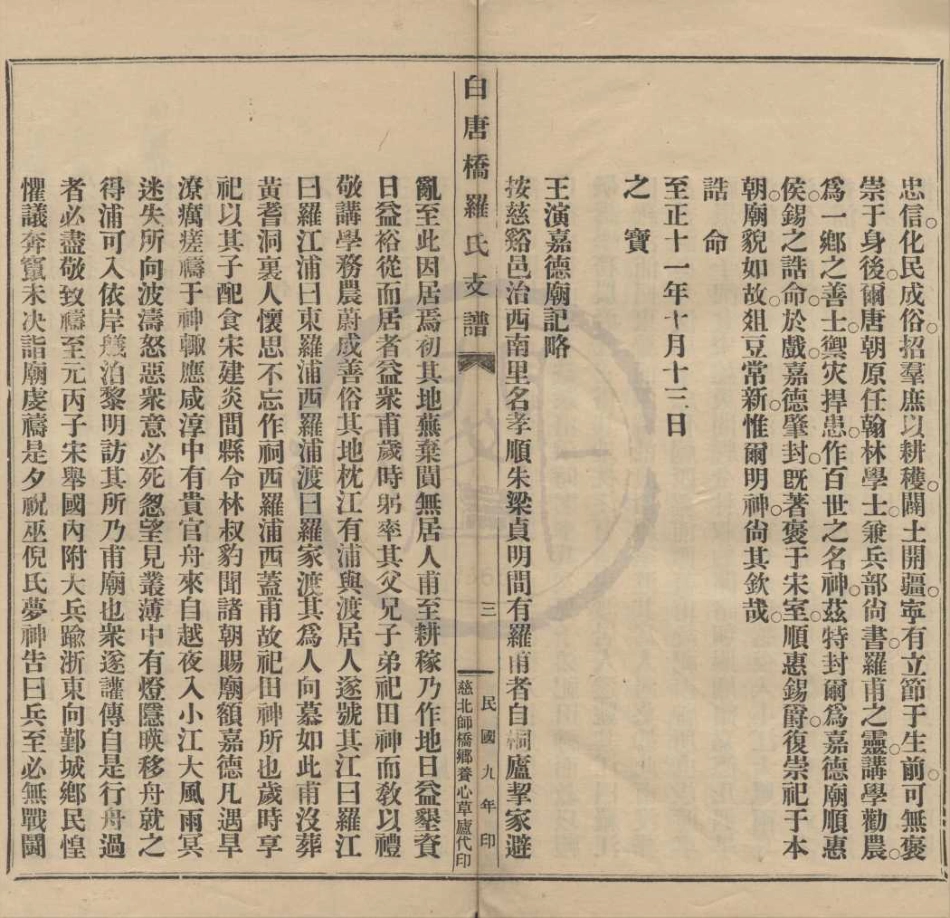 忠信化民成俗招羣庶以耕穫闢土開疆寧有立節于生前可無褒
崇于身後爾唐朝原任翰林學士兼兵部尙書羅甫之靈講學勸農
爲一鄕之善士禦灾捍患作百世之名神茲特封爾爲嘉德廟順惠
侯錫之誥命於戲嘉德肇封旣著褒于宋室順惠錫爵復崇祀于本
朝廟貌如故爼豆常新惟爾明神尙其欽哉
誥命
至正十一年十月十三日
之寶
王演嘉德廟記略
按慈谿邑治西南里名孝順朱梁貞明間有羅甫者自桐廬挈家避
白唐橋羅氏支譜
三
民國九年印
慈北師橋鄕養心草廬代印
亂至此因居焉初其地蕪棄閴無居人甫至耕稼乃作地日益墾資
日益裕從而居者益衆甫歲時躬率其父兄子弟祀田神而敎以禮
敬講學務農蔚成善俗其地枕江有浦與渡居人遂號其江曰羅江
曰羅江浦曰東羅浦西羅浦渡曰羅家渡其爲人向慕如此甫沒葬
黃耆洞裏人懷思不忘作祠西羅浦西蓋甫故祀田神所也歲時享
祀以其子配食宋建炎間縣令林叔豹聞諸朝賜廟額嘉德凡遇旱
潦癘瘥禱于神輙應咸淳中有貴官舟來自越夜入小江大風雨冥
迷失所向波濤怒惡衆意必死忽望見叢薄中有燈隱暎移舟就之
得浦可入依岸艤泊黎明訪其所乃甫廟也衆遂讙傳自是行舟過
者必盡敬致禱至元丙子宋舉國內附大兵踰浙東向鄞城鄕民惶
懼議奔竄未决詣廟虔禱是夕祝巫倪氏夢神告曰兵至必無戰鬪